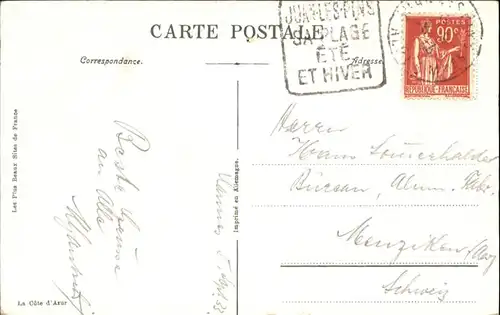 CARTE POSTALE
JUAN-LES-PINS
SA PLAGE
ÉTÉ
ET HIVER
POSTES
90c
RÉPUBLIQUE-FRANÇAISE
Correspondance.
Adresse
Les Plus Beaux Sites de France
La Côte d'Azur
Imprimé en Allemagne.
Beste Grüsse
an Alle
Herrn
Hans Sommerhalder
Bureau, Alum. Fabr.
Menziken (Arg
Schweiz